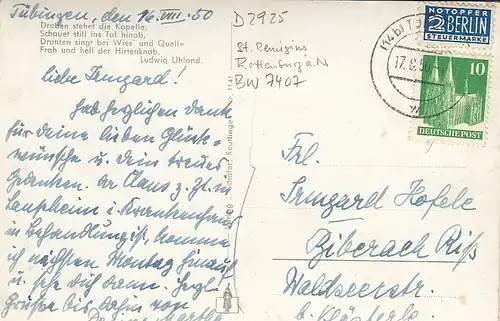 Tübingen, den 16.VIII.50
Droben stehet die Kapelle,
Schauet still ins Tal hinab,
Drunten singt bei Wies' und Quelle
Froh und hell der Hirtenknab.
Ludwig Uhland.
Liebe Irmgard!
Hab herzlichen Dank
für deine lieben Glück-
wünsche u. dein treues
Gedenken. Da Claus z. Zt. in
Laupheim i. Krankenhaus
in Behandlung ist, komme
ich nächsten Montag hinauf
u. seh dich dann. Herzl.
Grüße bis dahin von
Martha
D2925
St. Remigius
Rottenburg a.N
BW 7407
Reutlingen
Nr. 1141
(14b) T
17.8.50
NOTOPFER
2 BERLIN
STEUERMARKE
10
DEUTSCHE POST
Frl.
Irmgard Hofele
Biberach Riß
Waldseerstr.
b. Klösterle